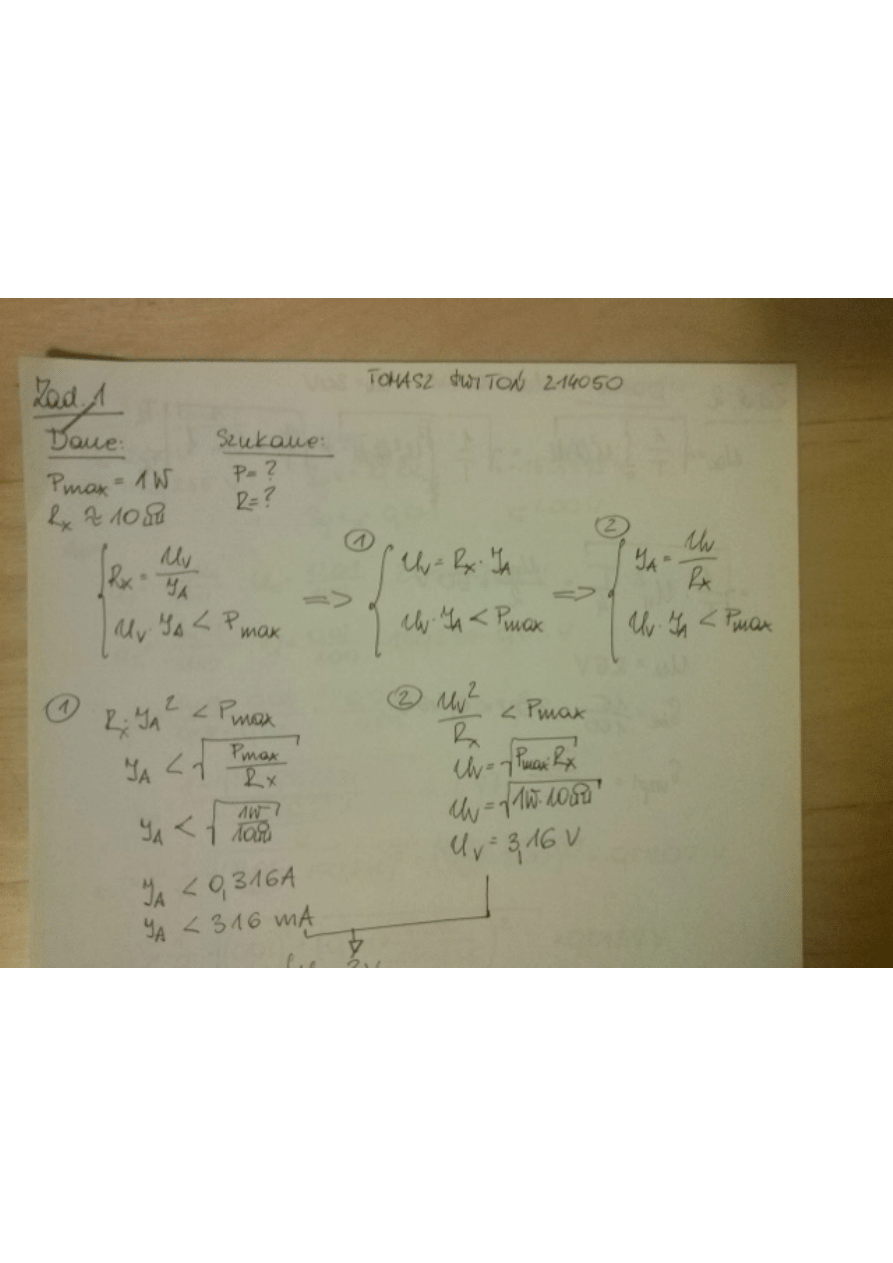 TOMASZ ŚWITOŃ 214050
Zad. 1
Dane:
Szukane:
Pmax = 1W
P = ?
Rx ≈ 10Ω
R = ?
Rx = Uv/IA
Uv · IA < Pmax
=>
①
Uv = Rx · IA
Uv · IA < Pmax
=>
②
IA = Uv/Rx
Uv · IA < Pmax
①
Rx · IA² < Pmax
IA < √(Pmax/Rx)
IA < √(1W/10Ω)
IA < 0,316A
IA < 316 mA
②
Uv²/Rx < Pmax
Uv = √(Pmax · Rx)
Uv = √(1W · 10Ω)
Uv = 3,16 V